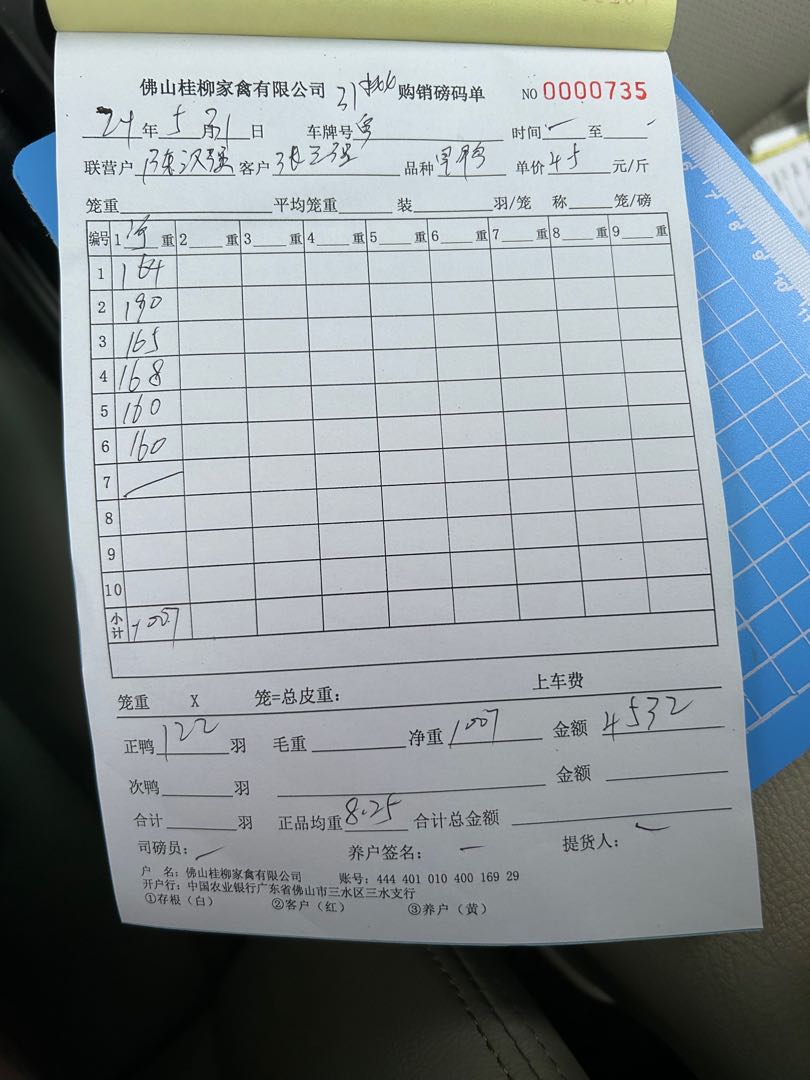 佛山桂柳家禽有限公司 31 购销磅码单 NO 0000735
24 年 5 月 31 日 车牌号 时间 至
联营户 陈汉强 客户 张三强 品种 单价 45 元/斤
笼重 平均笼重 装 羽/笼 称 笼/磅
编号 1 净 重 2 重 3 重 4 重 5 重 6 重 7 重 8 重 9 重
1 164
2 190
3 165
4 168
5 160
6 160
7
8
9
10
小计 1007
笼重 X 笼=总皮重: 上车费
正鸭 122 羽 毛重 净重 1007 金额 4532
次鸭 羽 金额
合计 羽 正品均重 8.25 合计总金额
司磅员: 养户签名: 提货人:
户 名: 佛山桂柳家禽有限公司 账号: 444 401 010 400 169 29
开户行: 中国农业银行广东省佛山市三水区三水支行
①存根(白) ②客户(红) ③养户(黄)